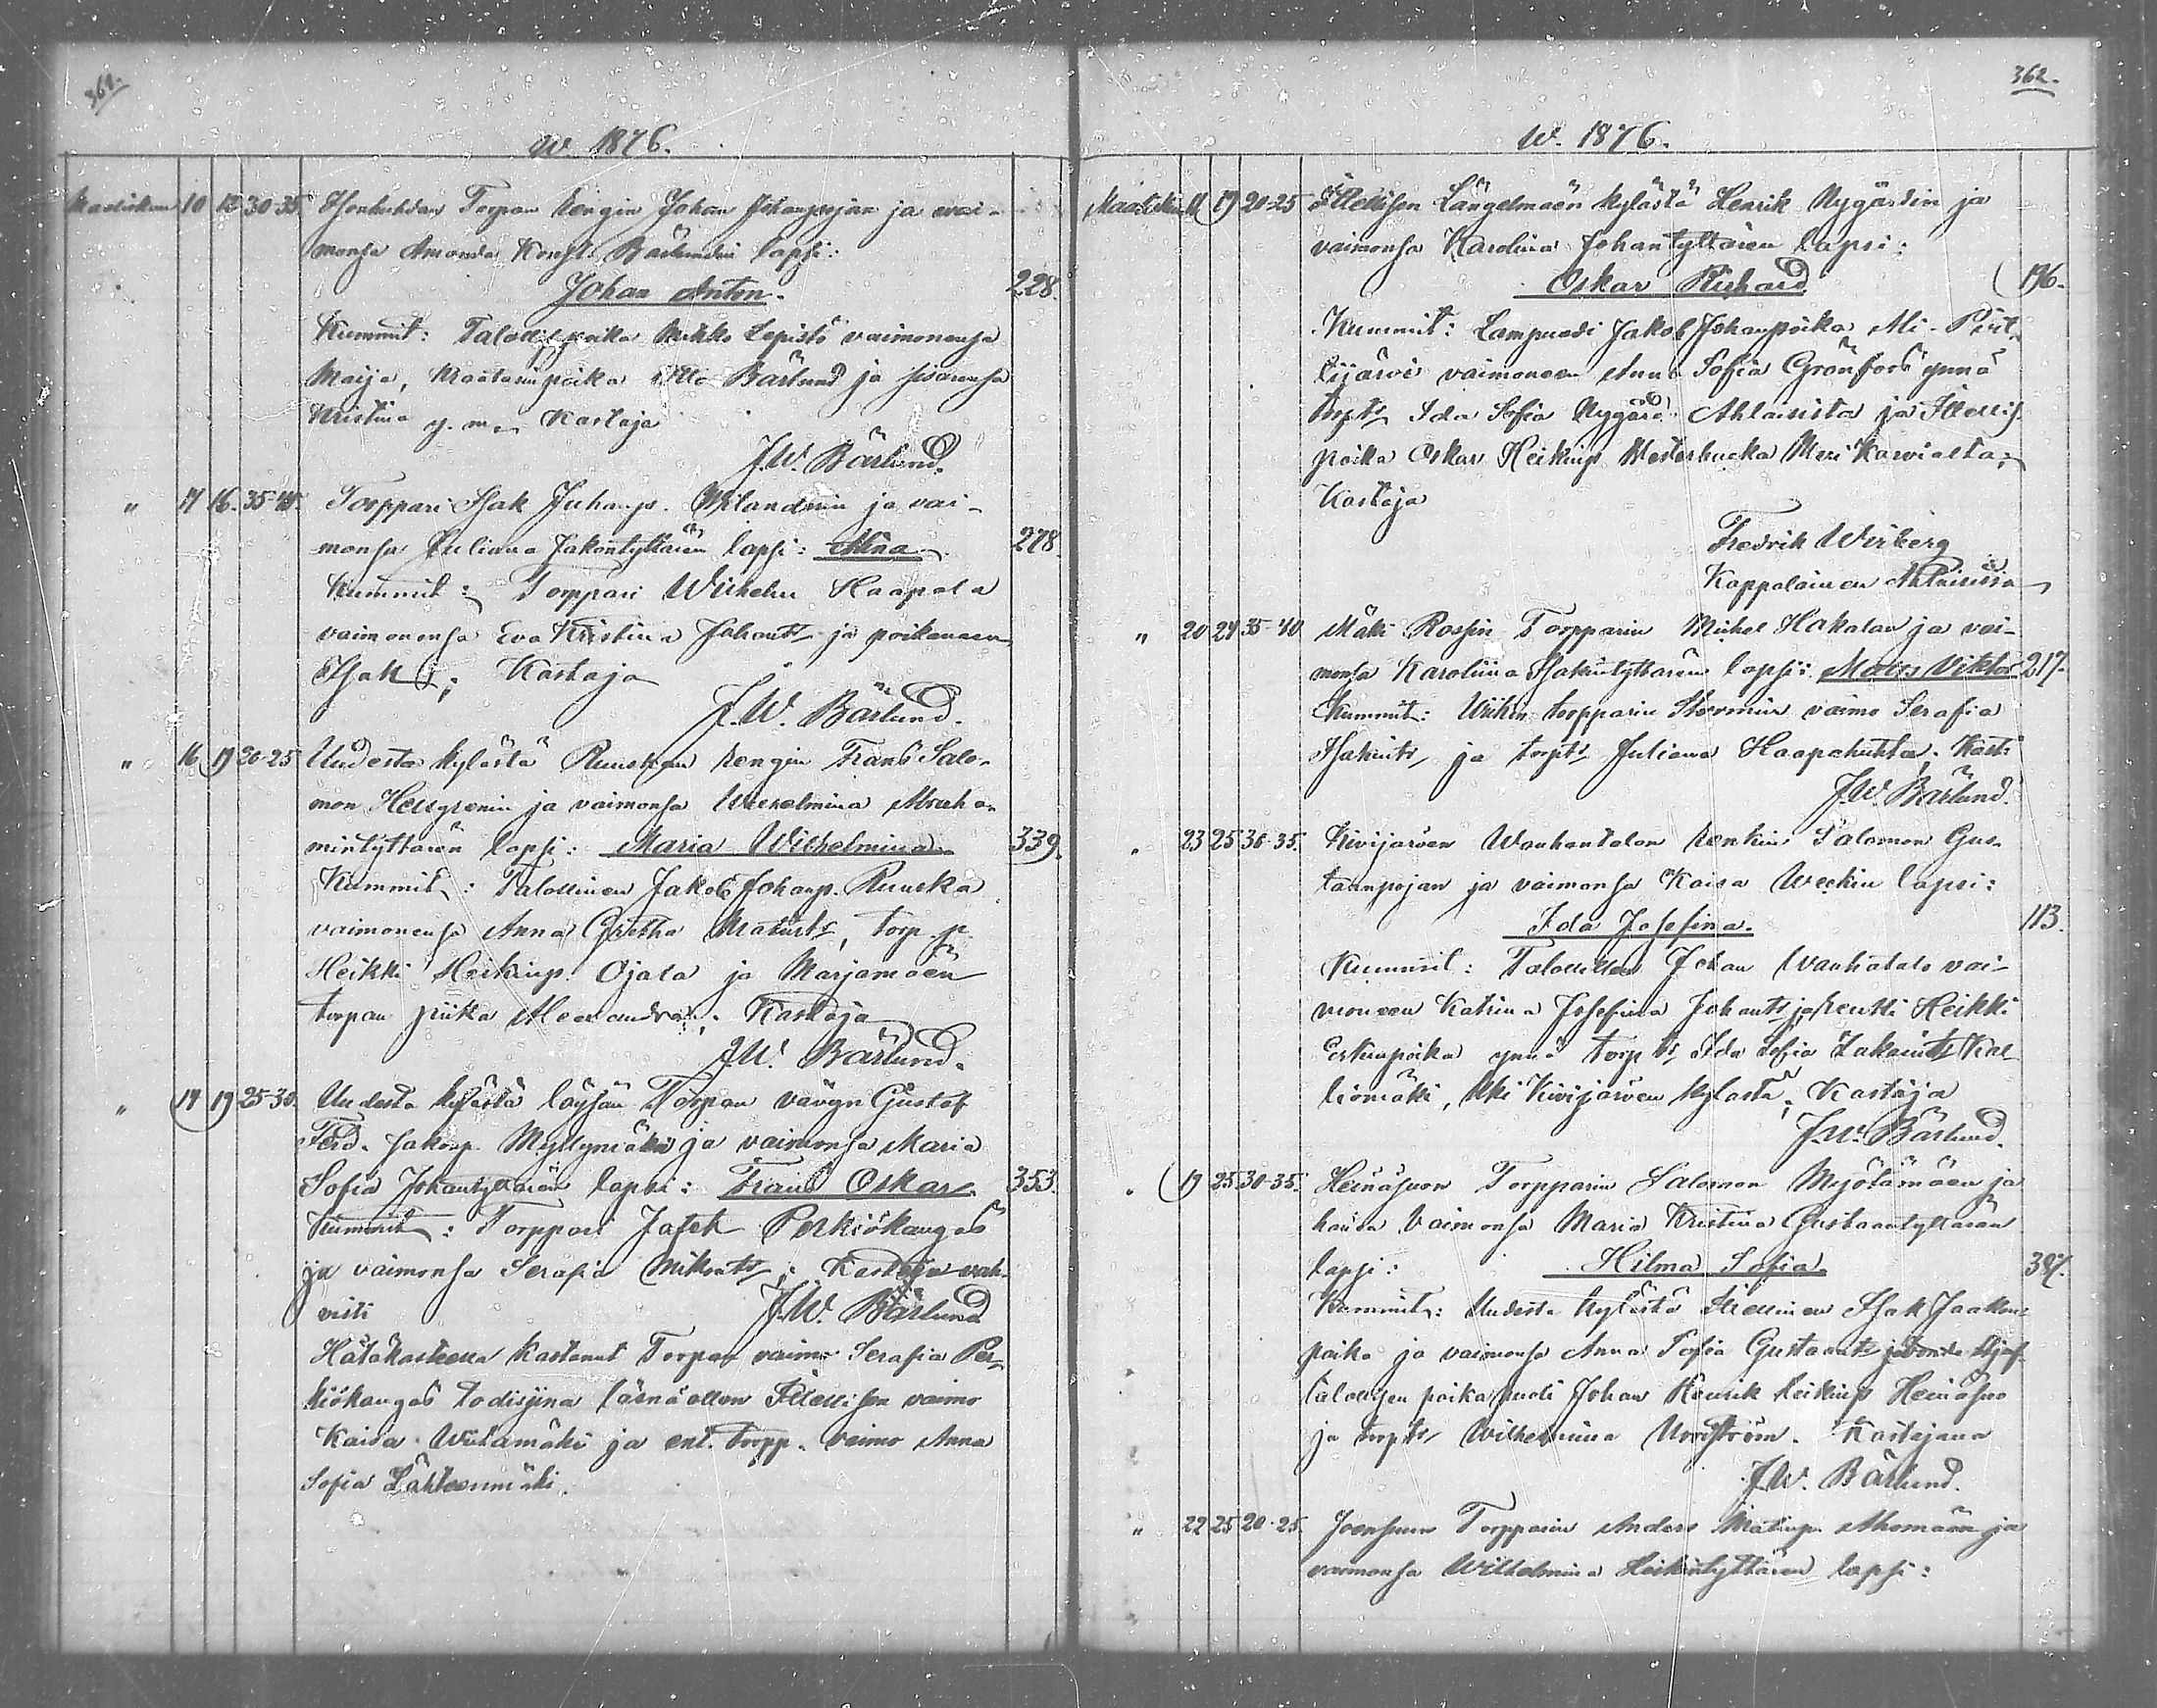 361.
w. 1876.
Maalisk. 10 12 30-35. Honkuhdan Torpan rengin Johan Johanpojan ja wai-
monsa Amanda Konst. Bärlundin lapsi:
Johan Anton. 228.
Kummit: Talollis poika Mikko Lepistö vaimonensa
Maija, Kraatarin poika Otto Bärlund ja sisarensa
Kristina y. m. Kastaja
J.W. Bärlund.
" 11 16. 35-40. Torppari Isak Juhanp. Wilandrin ja vai-
monsa Juliana Jakobintyttären lapsi: Mina 278
Kummit: Torppari Wilhelm Haapala
vaimonensa Eva Kristina Johants ja poikansa
Isak; Kastaja
J.W. Bärlund.
" 16 19 20-25 Uudesta kylästä Ruuskan rengin Frans Salo-
mon Hellgrenin ja vaimonsa Wilhelmina Abraha-
mintyttären lapsi: Maria Wilhelmina 339.
Kummit: Talollinen Jakob Johanp. Ruuska
vaimonensa Anna Gretha Matints, torp. p.
Heikki Heikinp. Ojala ja Marjamäen
torpan piika Alexandra; Kastaja
J.W. Bärlund.
" 14 19 25-30. Uudesta kylästä Torpan vävyn Gustaf
Ferd. Jakonp. Myllymäki ja vaimonsa Maria
Sofia Johantyttären lapsi: Frans Oskar. 353.
Kummit: Torppari Jafet Perkiökangas
ja vaimonsa Serafia Mikonts; Kastajan vah-
visti J.W. Bärlund
Hätäkasteessa kastanut Torpan vaimo Serafia Per-
kiökangas todistajina läsnäollen Itsellisen vaimo
Kaisa Wiitamäki ja ent. torpp. vaimo Anna
Sofia Lähteenmäki.
362.
w. 1876.
Maalisk. 11 19 20-25 Itsellisen Längelmäen kylästä Henrik Nygårdin ja
vaimonsa Karolina Johantyttären lapsi:
Oskar Richard 196.
Kummit: Lampuodi Jakob Johanpoika Ali-Pert-
lijärvi vaimoneen Anna Sofia Grönfors ynnä
torpts Ida Sofia Nygård Ahlaisista ja Itsellis.
poika Oskar Heikinp Westerbacka Meri Karvialta;
Kastaja
Fredrik Wirberg
Kappalainen Ahlaisissa
" 20 24 35-40 Mäki Rossin Torpparin Mikel Hakalan ja vai-
monsa Karoliina Isakintyttären lapsi: Mauss Viktor 217.
Kummit: torpparin Stormin vaimo Serafia
Isakints ja torpts Juliana Haapahuhta; Kasti
J.W. Bärlund.
" 23 25 30-35. Kivijärven Wanhantalon renkin Salomon Gus-
taanpojan ja vaimonsa Kaisa lapsi:
Ida Josefina. 113.
Kummit: Talollinen Johan Wanhatalo vai-
moneen Katrina Josefina Johants ja renki Heikki
Erkinpoika ynnä torpts Ida Sofia Zakarints Kal-
liomäki, Uki Kivijärven kylästä; Kastaja
J.W. Bärlund.
" 19 25 30-35. Heinäsuon Torpparin Salomon Myötämäen ja
hänen Vaimonsa Maria Kristina Gustaantyttären
lapsi: Hilma Sofia. 387.
Kummit: Uudesta kylästä Itsellinen Isak Jaakon-
poika ja vaimonsa Anna Sofia Gustaants
talollisen poika puoli Johan Henrik Heikinp Heinäsuo
ja torpts Wilhelmina Norrström. Kastajana
J.W. Bärlund.
" 22 25 20-25. Joensuun Torpparin Anders Matinp. Ahomäen ja
vaimonsa Wilhelmina Heikintyttären lapsi: